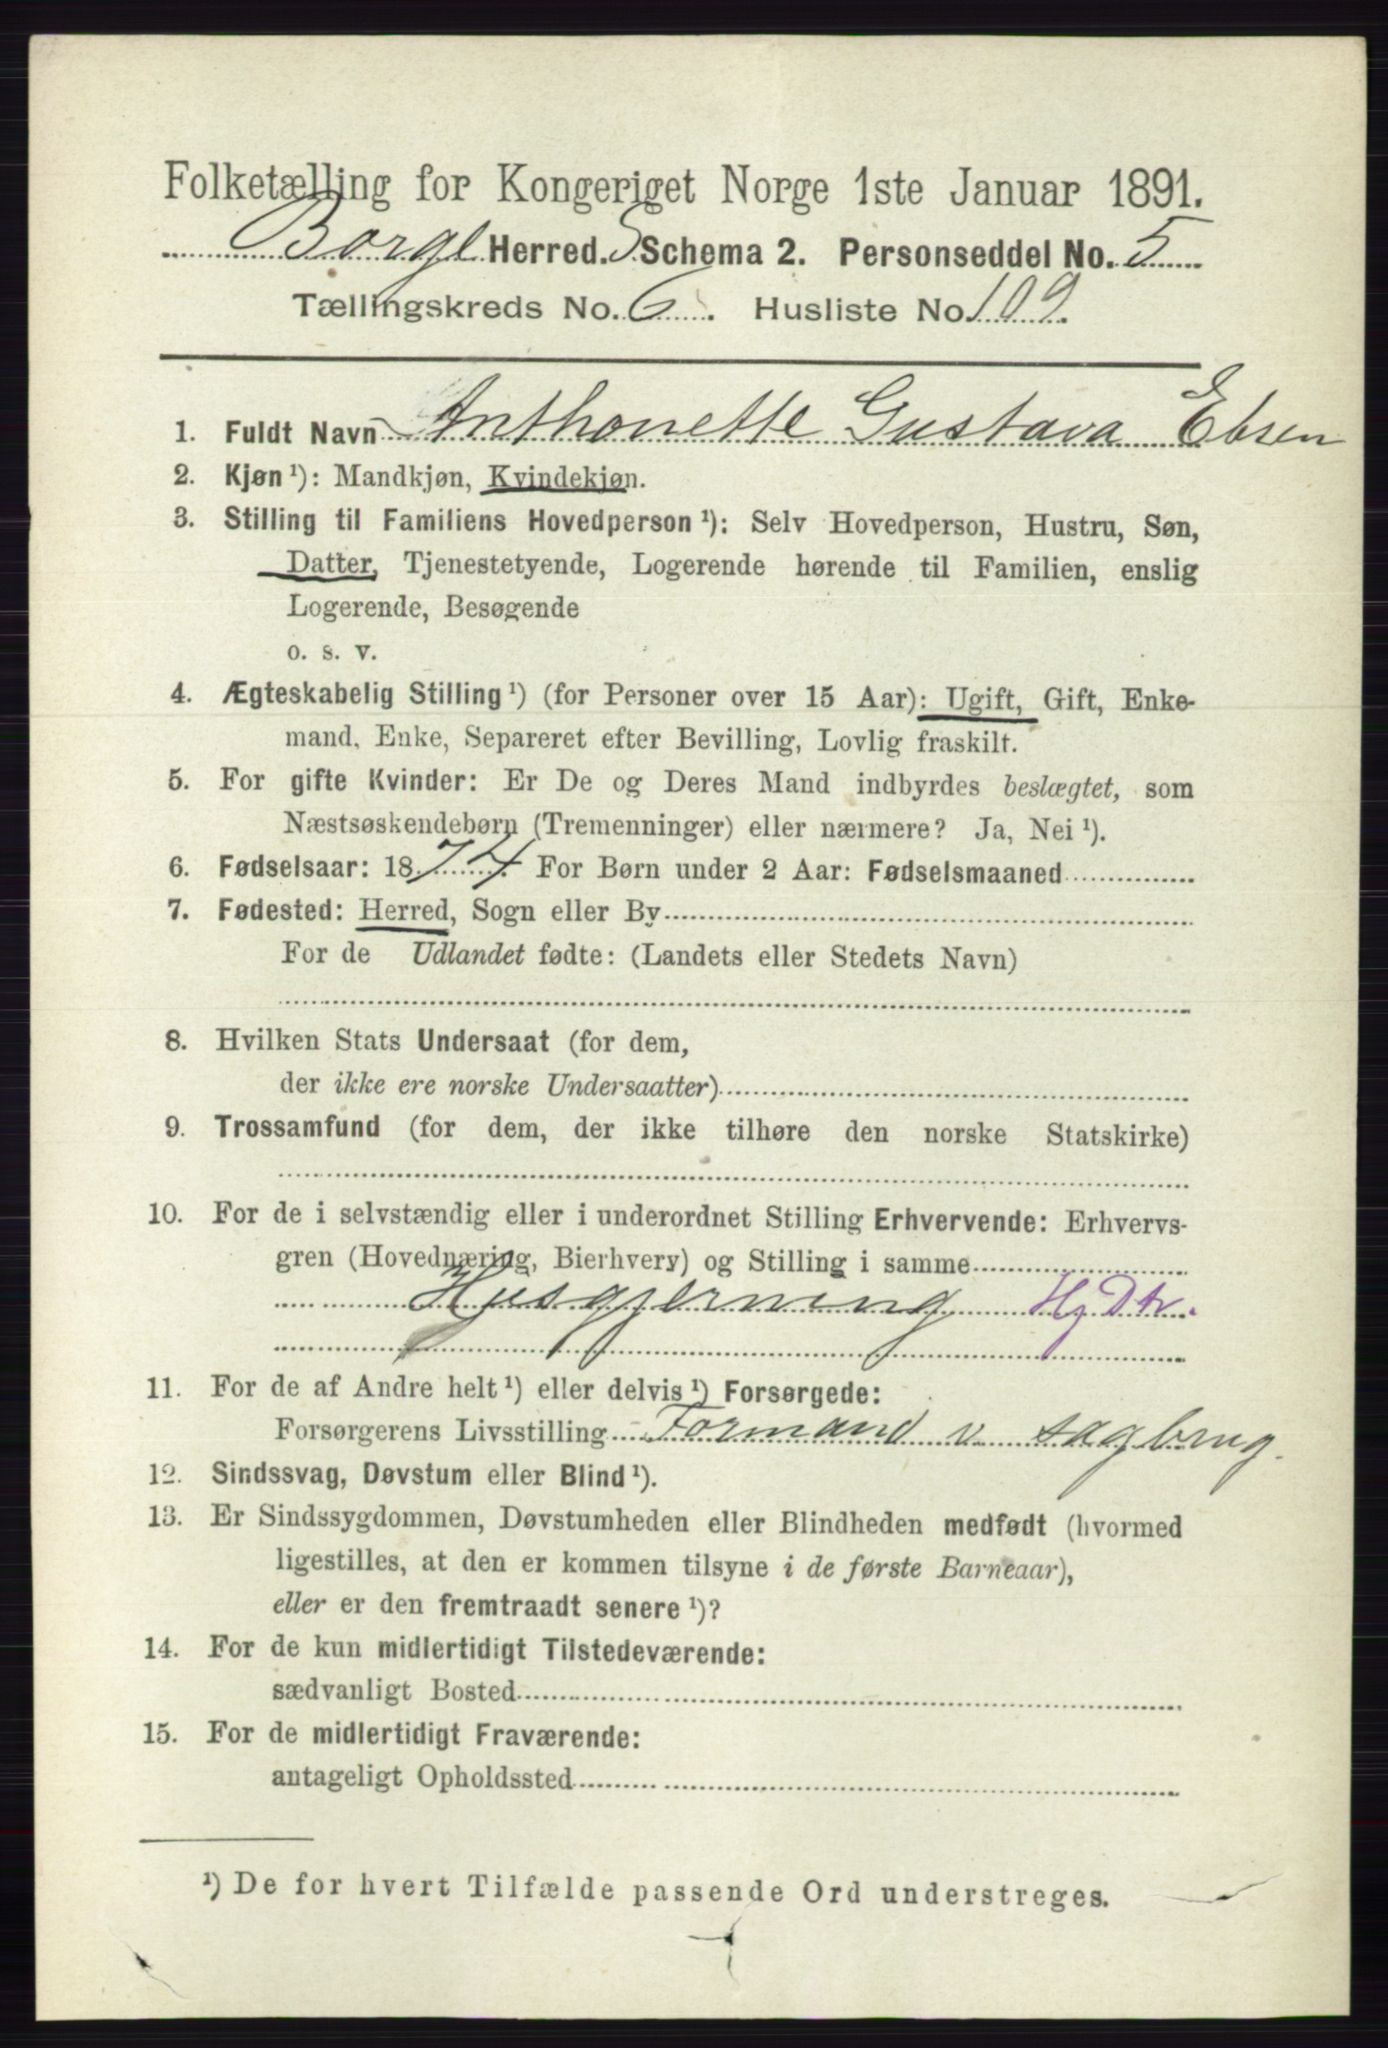 Folketælling for Kongeriget Norge 1ste Januar 1891.
Borge Herred. S Schema 2. Personseddel No. 5
Tællingskreds No. 6. Husliste No. 109
1. Fuldt Navn Anthonette Gustava Ebsen
2. Kjøn¹): Mandkjøn, Kvindekjøn.
3. Stilling til Familiens Hovedperson¹): Selv Hovedperson, Hustru, Søn,
Datter, Tjenestetyende, Logerende hørende til Familien, enslig
Logerende, Besøgende
o. s. v.
4. Ægteskabelig Stilling¹) (for Personer over 15 Aar): Ugift, Gift, Enke-
mand, Enke, Separeret efter Bevilling, Lovlig fraskilt.
5. For gifte Kvinder: Er De og Deres Mand indbyrdes beslægtet, som
Næstsøskendebørn (Tremenninger) eller nærmere? Ja, Nei¹).
6. Fødselsaar: 1874. For Børn under 2 Aar: Fødselsmaaned
7. Fødested: Herred, Sogn eller By
For de Udlandet fødte: (Landets eller Stedets Navn)
8. Hvilken Stats Undersaat (for dem,
der ikke ere norske Undersaatter)
9. Trossamfund (for dem, der ikke tilhøre den norske Statskirke)
10. For de i selvstændig eller i underordnet Stilling Erhvervende: Erhvervs-
gren (Hovednæring, Bierhverv) og Stilling i samme
Husgjerning Hj Dtr.
11. For de af Andre helt¹) eller delvis¹) Forsørgede:
Forsørgerens Livsstilling Formand v sagbrug.
12. Sindssvag, Døvstum eller Blind¹).
13. Er Sindssygdommen, Døvstumheden eller Blindheden medfødt (hvormed
ligestilles, at den er kommen tilsyne i de første Barneaar),
eller er den fremtraadt senere¹)?
14. For de kun midlertidigt Tilstedeværende:
sædvanligt Bosted
15. For de midlertidigt Fraværende:
antageligt Opholdssted
¹) De for hvert Tilfælde passende Ord understreges.